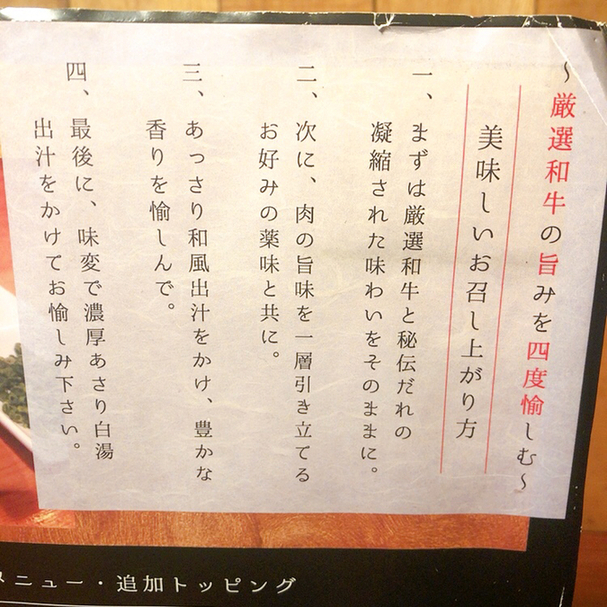 ～厳選和牛の旨みを四度愉しむ～
美味しいお召し上がり方
一、まずは厳選和牛と秘伝だれの
凝縮された味わいをそのままに。
二、次に、肉の旨味を一層引き立てる
お好みの薬味と共に。
三、あっさり和風出汁をかけ、豊かな
香りを愉しんで。
四、最後に、味変で濃厚あさり白湯
出汁をかけてお愉しみ下さい。
メニュー・追加トッピング